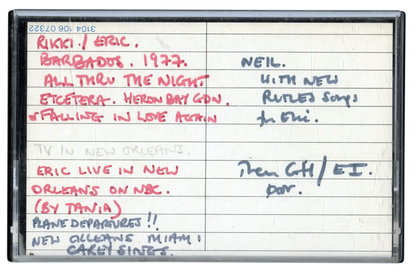 3104 106 07322
RIKKI./ERIC.
BARBADOS. 1977.
ALL THRU THE NIGHT
ETCETERA. HERON BAY GDN.
FALLING IN LOVE AGAIN
TV IN NEW ORLEANS.
ERIC LIVE IN NEW
ORLEANS ON NBC.
(BY TANIA)
PLANE DEPARTURES!!
NEW ORLEANS MIAMI
CAREY SINGS.
NEIL.
WITH NEW
RUTLES Songs
for Eric.
Then GH/EI.